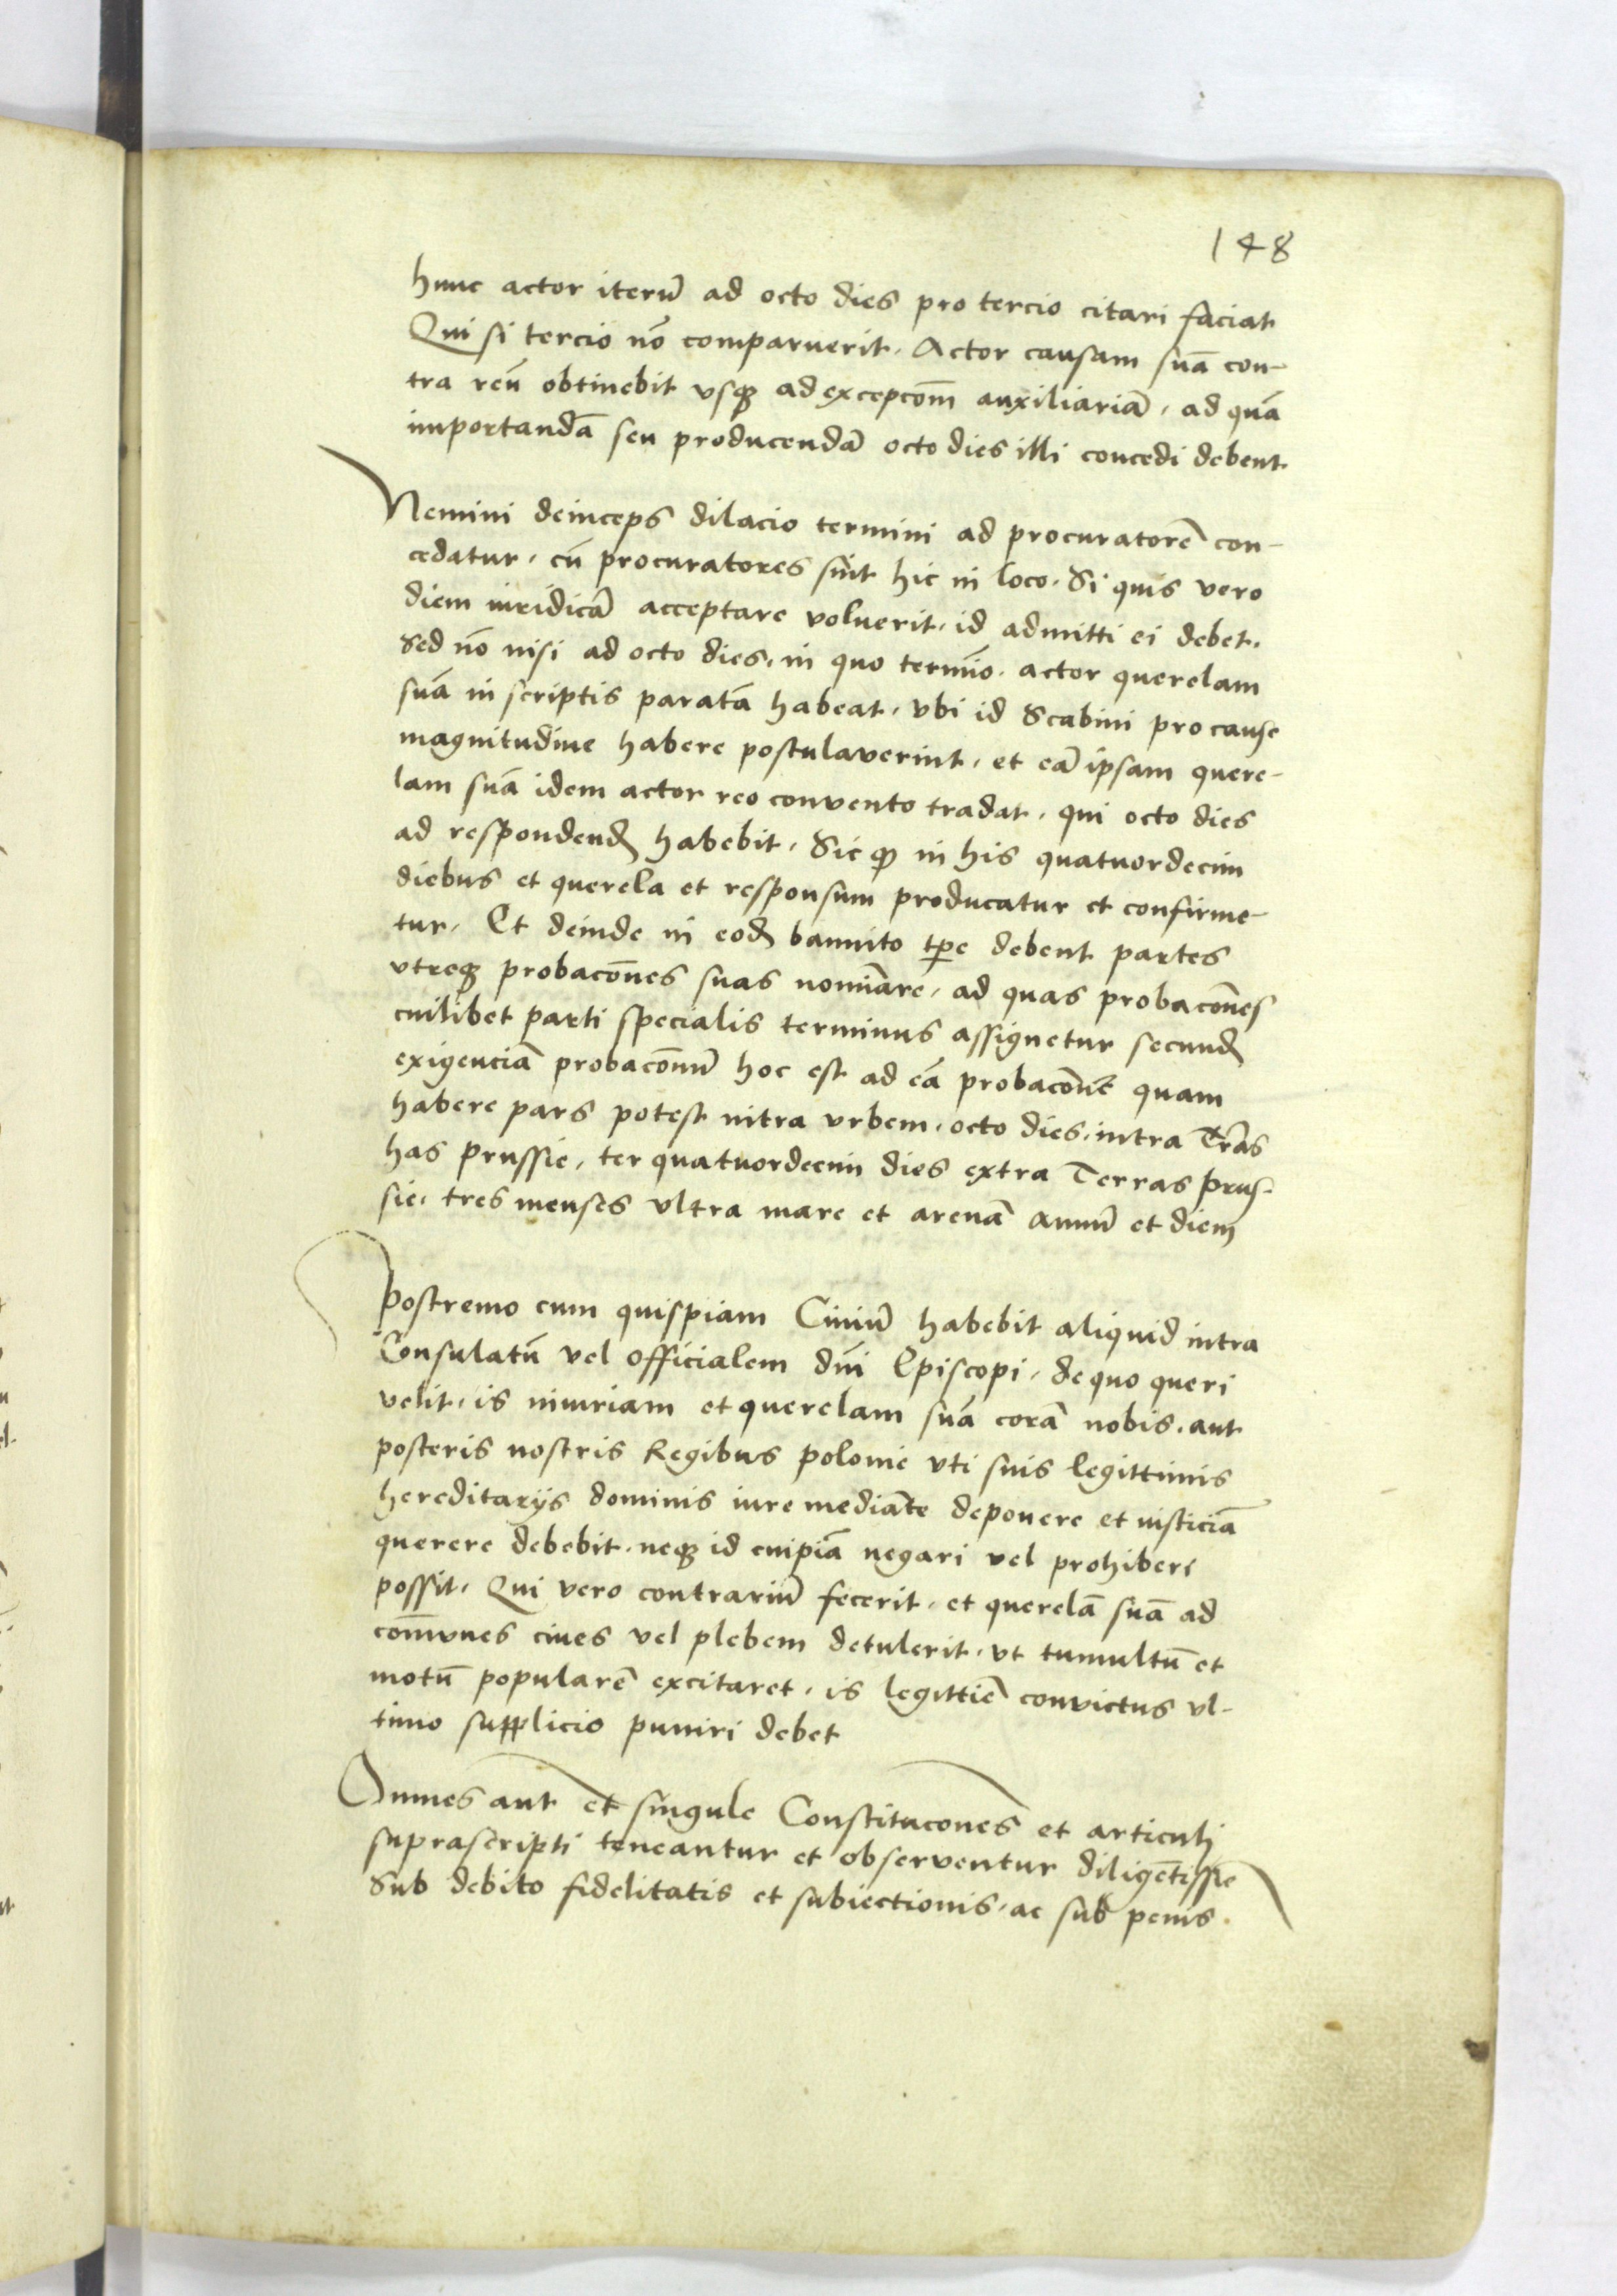 148
hunc actor iterũ ad octo dies pro tercio citari faciat
Qui si tercio nõ comparuerit, Actor causam suã con-
tra reũ obtinebit vsqꝫ ad excepcõm auxiliariã, ad quã
importandã seu producendã octo dies illi concedi debent
Nemini deinceps dilacio termini ad procuratorẽ con-
cedatur, cũ procuratores sint hic in loco. Si quis vero
diem iuridicã acceptare voluerit, id admitti ei debet.
Sed nõ nisi ad octo dies, in quo termĩo, actor querelam
suã in scriptis paratã habeat, vbi id Scabini pro cause
magnitudine habere postulaverint, et eã ipsam quere-
lam suã idem actor reo convento tradat, qui octo dies
ad respondendꝫ habebit, Sic qꝫ in his quatuordecim
diebus et querela et responsum producatur et confirme-
tur. Et deinde in eodꝫ bannito tp̃e debent partes
vtreqꝫ probacõnes suas nomĩare, ad quas probacõnes
cuilibet parti specialis terminus assignetur secundꝫ
exigenciã probacõnũ hoc est ad eã probacõnẽ quam
habere pars potest intra vrbem, octo dies, intra Tr̃as
has prussie, ter quatuordecim dies extra Terras prus-
sie, tres menses vltra mare et arenã annũ et diem
Postremo cum quispiam Ciuiũ habebit aliquid intra
Consulatũ vel officialem dñi Episcopi, de quo queri
velit, is iniuriam et querelam suã corã nobis, aut
posteris nostris Regibus polonie vti suis legittimis
hereditarijs dominis iure mediãte deponere et iusticiã
querere debebit, neqꝫ id cuipiã negari vel prohiberi
possit, Qui vero contrariũ fecerit, et querelã suã ad
com̃unes ciues vel plebem detulerit, vt tumultũ et
motũ popularẽ excitaret, is legittiẽ convictus vl-
timo supplicio puniri debet
Omnes aut̃ et singule Constitucõnes et articuli
suprascripti teneantur et observentur diligẽtissĩe
Sub debito fidelitatis et subiectionis, ac sub penis.